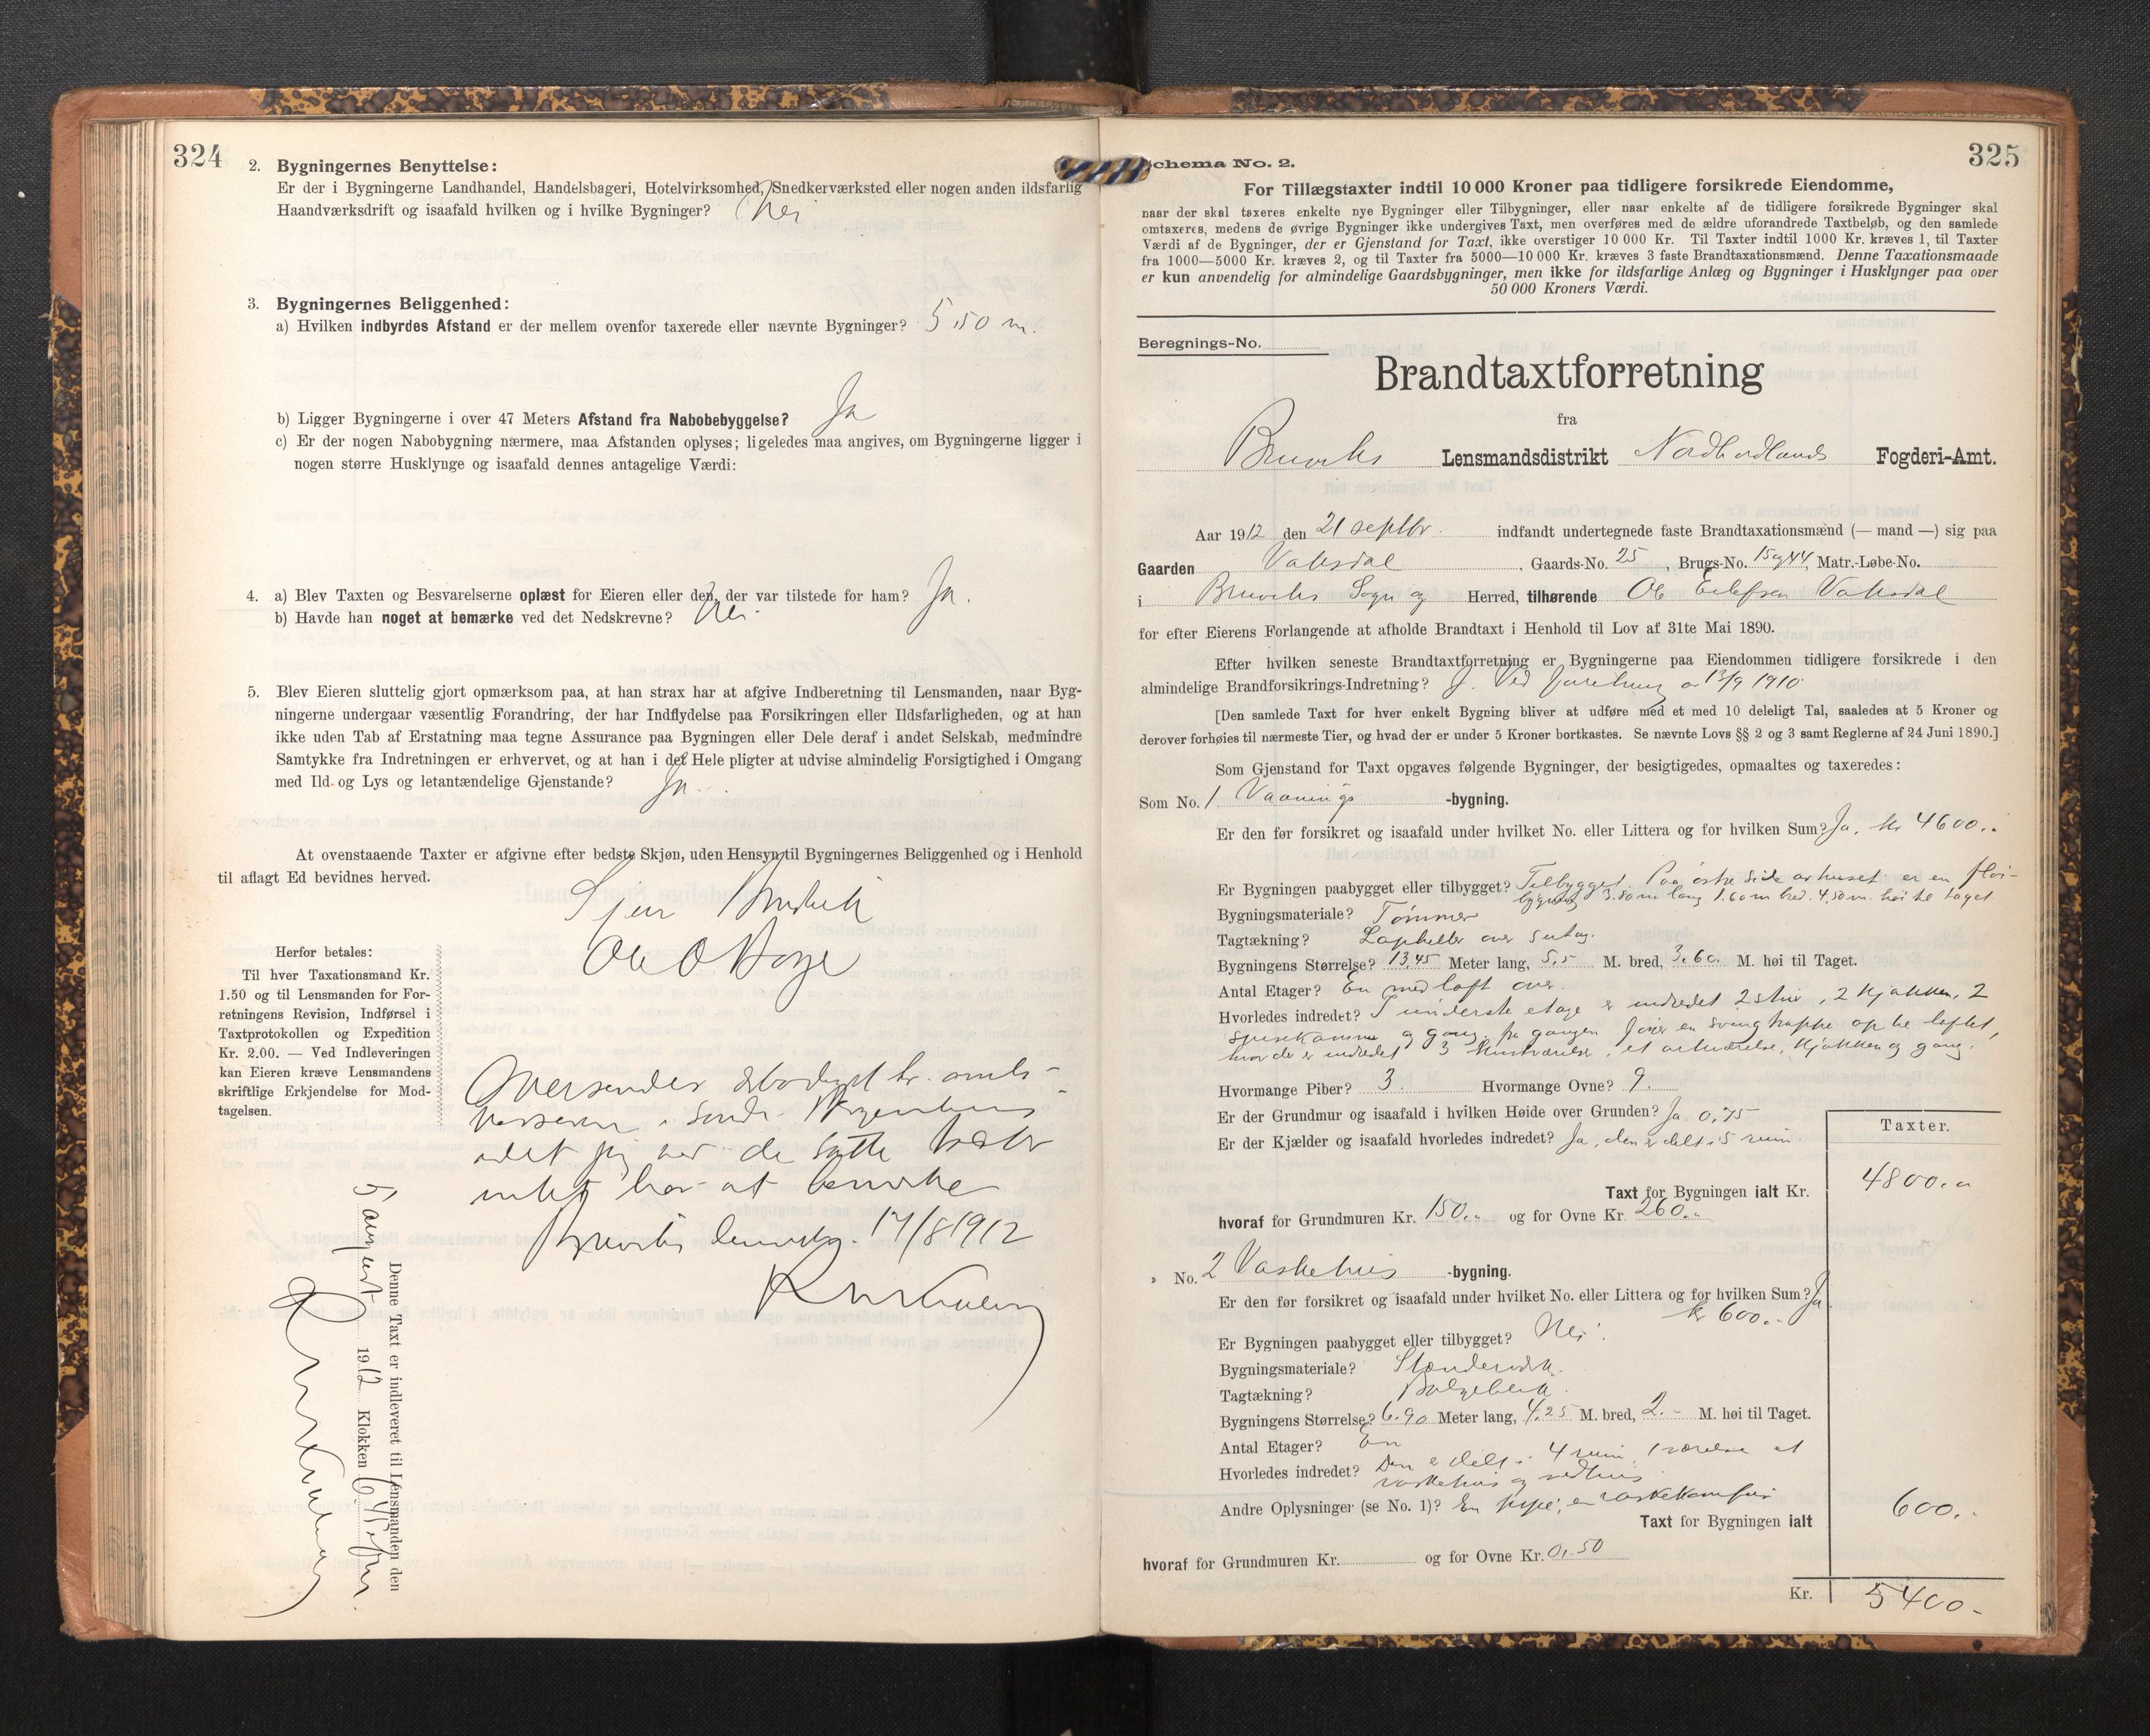 324
2. Bygningernes Benyttelse:
Er der i Bygningerne Landhandel, Handelsbageri, Hotelvirksomhed, Snedkerværksted eller nogen anden ildsfarlig
Haandværksdrift og isaafald hvilken og i hvilke Bygninger? Nei
3. Bygningernes Beliggenhed:
a) Hvilken indbyrdes Afstand er der mellem ovenfor taxerede eller nævnte Bygninger? 5,50 m.
b) Ligger Bygningerne i over 47 Meters Afstand fra Nabobebyggelse? Ja
c) Er der nogen Nabobygning nærmere, maa Afstanden oplyses; ligeledes maa angives, om Bygningerne ligger i
nogen større Husklynge og isaafald dennes antagelige Værdi:
4. a) Blev Taxten og Besvarelserne oplæst for Eieren eller den, der var tilstede for ham? Ja.
b) Havde han noget at bemærke ved det Nedskrevne? Nei
5. Blev Eieren sluttelig gjort opmærksom paa, at han strax har at afgive Indberetning til Lensmanden, naar Byg-
ningerne undergaar væsentlig Forandring, der har Indflydelse paa Forsikringen eller Ildsfarligheden, og at han
ikke uden Tab af Erstatning maa tegne Assurance paa Bygningen eller Dele deraf i andet Selskab, medmindre
Samtykke fra Indretningen er erhvervet, og at han i det Hele pligter at udvise almindelig Forsigtighed i Omgang
med Ild og Lys og letantændelige Gjenstande? Ja.
At ovenstaaende Taxter er afgivne efter bedste Skjøn, uden Hensyn til Bygningernes Beliggenhed og i Henhold
til aflagt Ed bevidnes herved.
Ole O
Herfor betales:
Til hver Taxationsmand Kr.
1.50 og til Lensmanden for For-
retningens Revision, Indførsel i
Taxtprotokollen og Expedition
Kr. 2.00. — Ved Indleveringen
kan Eieren kræve Lensmandens
skriftlige Erkjendelse for Mod-
tagelsen.
Oversendes
idet jeg ved de satte takster
intet har at bemerke
17/8 1912
Denne Taxt er indleveret til Lensmanden den
5 august 1912 Klokken 6
325
Schema No. 2.
For Tillægstaxter indtil 10 000 Kroner paa tidligere forsikrede Eiendomme,
naar der skal taxeres enkelte nye Bygninger eller Tilbygninger, eller naar enkelte af de tidligere forsikrede Bygninger skal
omtaxeres, medens de øvrige Bygninger ikke undergives Taxt, men overføres med de ældre uforandrede Taxtbeløb, og den samlede
Værdi af de Bygninger, der er Gjenstand for Taxt, ikke overstiger 10 000 Kr. Til Taxter indtil 1000 Kr. kræves 1, til Taxter
fra 1000—5000 Kr. kræves 2, og til Taxter fra 5000—10 000 Kr. kræves 3 faste Brandtaxationsmænd. Denne Taxationsmaade
er kun anvendelig for almindelige Gaardsbygninger, men ikke for ildsfarlige Anlæg og Bygninger i Husklynger paa over
50 000 Kroners Værdi.
Beregnings-No.
Brandtaxtforretning
fra
Bruviks Lensmandsdistrikt Nordhordlands Fogderi-Amt.
Aar 1912 den 21 septbr. indfandt undertegnede faste Brandtaxationsmænd (— mand —) sig paa
Gaarden Vaksdal, Gaards-No. 25, Brugs-No. 15 og 44, Matr.-Løbe-No.
i Bruviks Sogn og Herred, tilhørende Ole Eilefsen Vaksdal
for efter Eierens Forlangende at afholde Brandtaxt i Henhold til Lov af 31te Mai 1890.
Efter hvilken seneste Brandtaxtforretning er Bygningerne paa Eiendommen tidligere forsikrede i den
almindelige Brandforsikrings-Indretning? J. Ved forretning av 13/9 1910
[Den samlede Taxt for hver enkelt Bygning bliver at udføre med et med 10 deleligt Tal, saaledes at 5 Kroner og
derover forhøies til nærmeste Tier, og hvad der er under 5 Kroner bortkastes. Se nævnte Lovs §§ 2 og 3 samt Reglerne af 24 Juni 1890.]
Som Gjenstand for Taxt opgaves følgende Bygninger, der besigtigedes, opmaaltes og taxeredes:
Som No. 1 Vaanings -bygning.
Er den før forsikret og isaafald under hvilket No. eller Littera og for hvilken Sum? Ja. kr 4600.-
Er Bygningen paabygget eller tilbygget? Tilbygget. Paa østre side av huset er en fløi-
bygning 3.80 m lang 1.60 m bred. 4,50 m. høi til taget
Bygningsmateriale? Tømmer
Tagtækning? Lapheller over sutag.
Bygningens Størrelse? 13,45 Meter lang, 5,5 M. bred, 3,60 M. høi til Taget.
Antal Etager? En med loft over.
Hvorledes indredet? I underste etage er indredet 2 stuer, 2 kjøkken, 2
spisekammer og gang. fra gangen fører en svingtrappe op til loftet,
hvor der er indredet 3 værelse, et arbværelse, kjøkken og gang.
Hvormange Piber? 3. Hvormange Ovne? 9.
Er der Grundmur og isaafald i hvilken Høide over Grunden? Ja 0,75
Er der Kjælder og isaafald hvorledes indredet? Ja, den er delt i 5 rum.
Taxter.
Taxt for Bygningen ialt Kr. 4800.-
hvoraf for Grundmuren Kr. 150.- og for Ovne Kr. 260.-
» No. 2 Vaskehus -bygning.
Er den før forsikret og isaafald under hvilket No. eller Littera og for hvilken Sum? Ja
kr 600.-
Er Bygningen paabygget eller tilbygget? Nei.
Bygningsmateriale? Stenderverk.
Tagtækning? Bølgeblik.
Bygningens Størrelse? 6.90 Meter lang, 4.25 M. bred, 2.- M. høi til Taget.
Antal Etager? En
Hvorledes indredet? Den er delt i 4 rum, 1 værelse et
vaskehus og vedhus
Andre Oplysninger (se No. 1)? En pipe, en vaskekomfur
Taxt for Bygningen ialt 600.-
hvoraf for Grundmuren Kr. og for Ovne Kr. 0,50
Kr. 5400.-